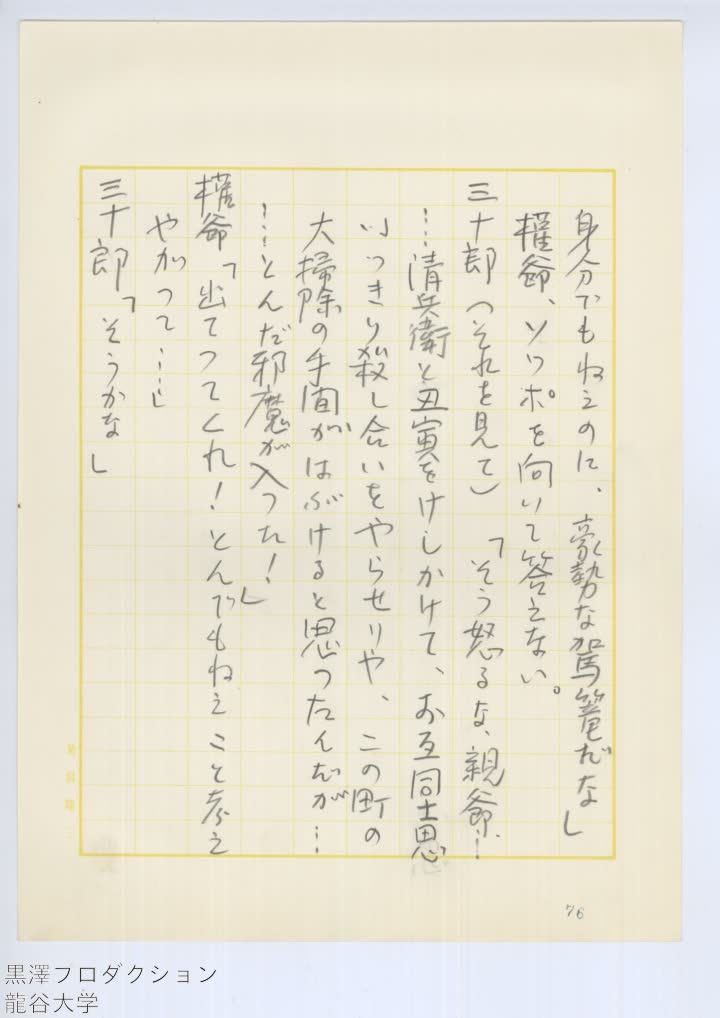 身分でもねえのに、豪勢な駕篭だな」
権爺、ソッポを向いて答えない。
三十郎（それを見て）「そう怒るな、親爺…
…清兵衛と丑寅をけしかけて、お互同士思
いっきり殺し合いをやらせりや、この町の
大掃除の手間がはぶけると思ったんだが…
…とんだ邪魔が入った！」
権爺「出てってくれ！とんでもねえこと考え
やがって……」
三十郎「そうかな」
76
黒澤プロダクション
龍谷大学